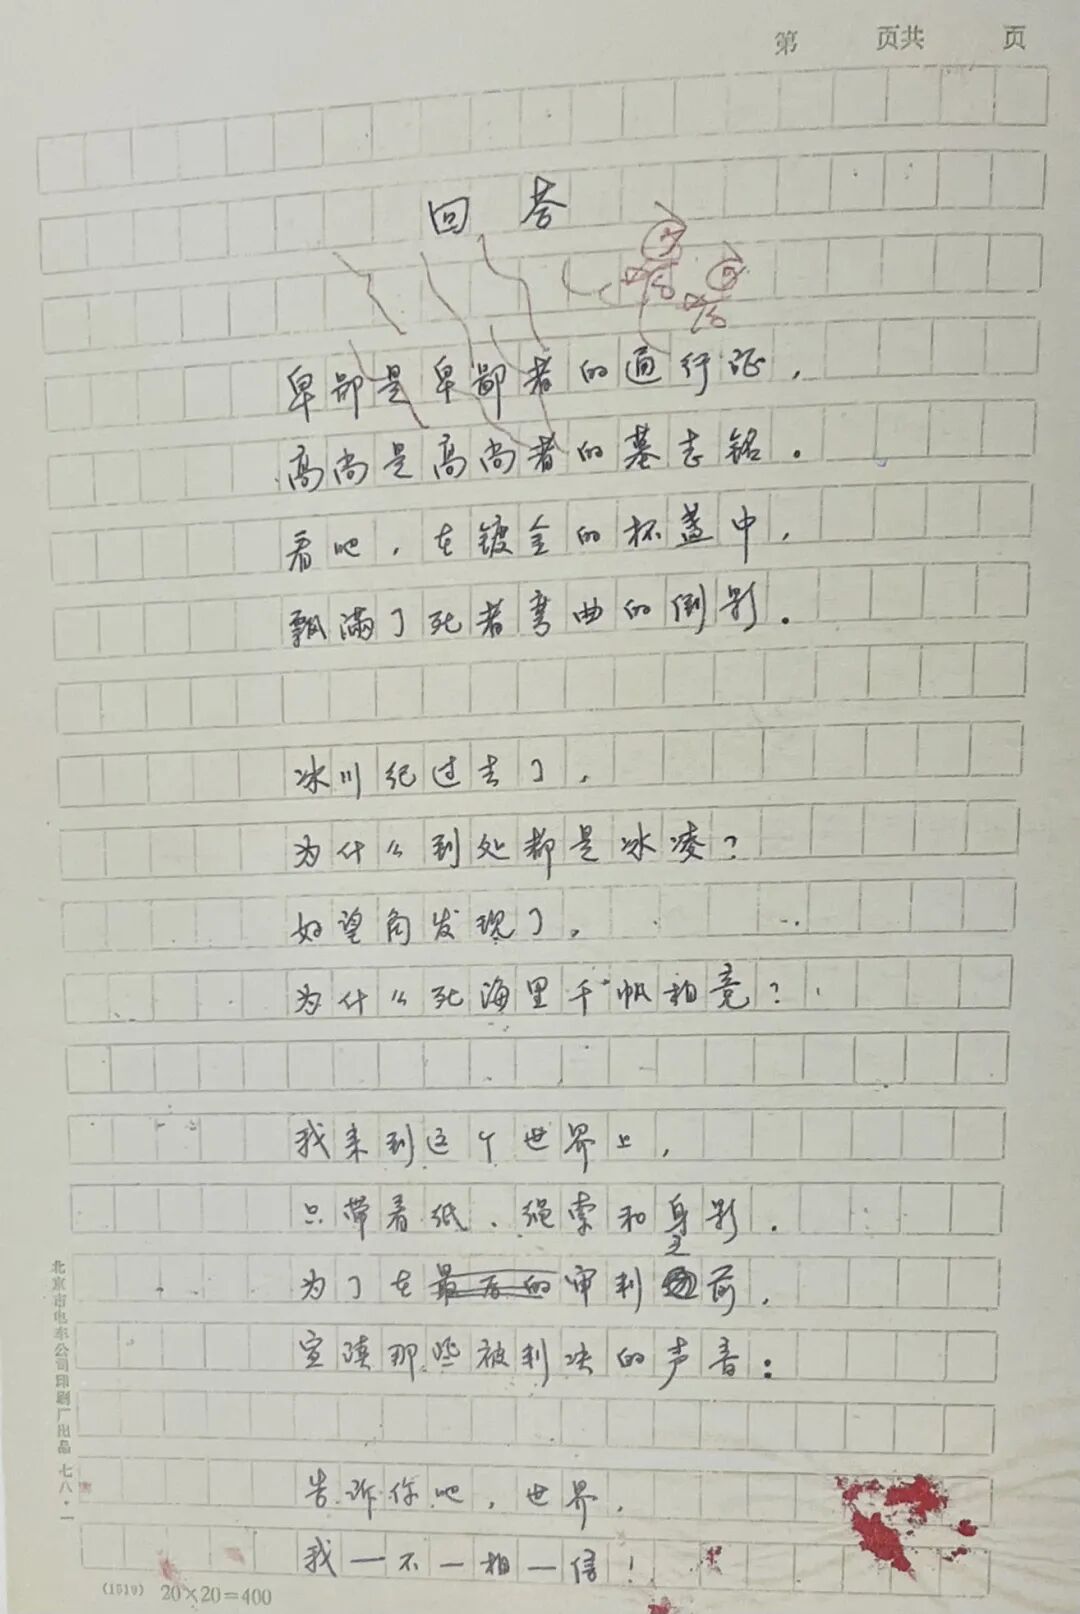 第 页共 页
回答
卑鄙是卑鄙者的通行证，
高尚是高尚者的墓志铭。
看吧，在镀金的杯盖中，
飘满了死者弯曲的倒影。
冰川纪过去了，
为什么到处都是冰凌？
好望角发现了，
为什么死海里千帆相竞？
我来到这个世界上，
只带着纸、绳索和身影，
为了在最后的审判之前，
宣读那些被判决的声音：
告诉你吧，世界，
我—不—相—信！
北京市电车公司印刷厂出品 七八·一
(1519) 20×20=400